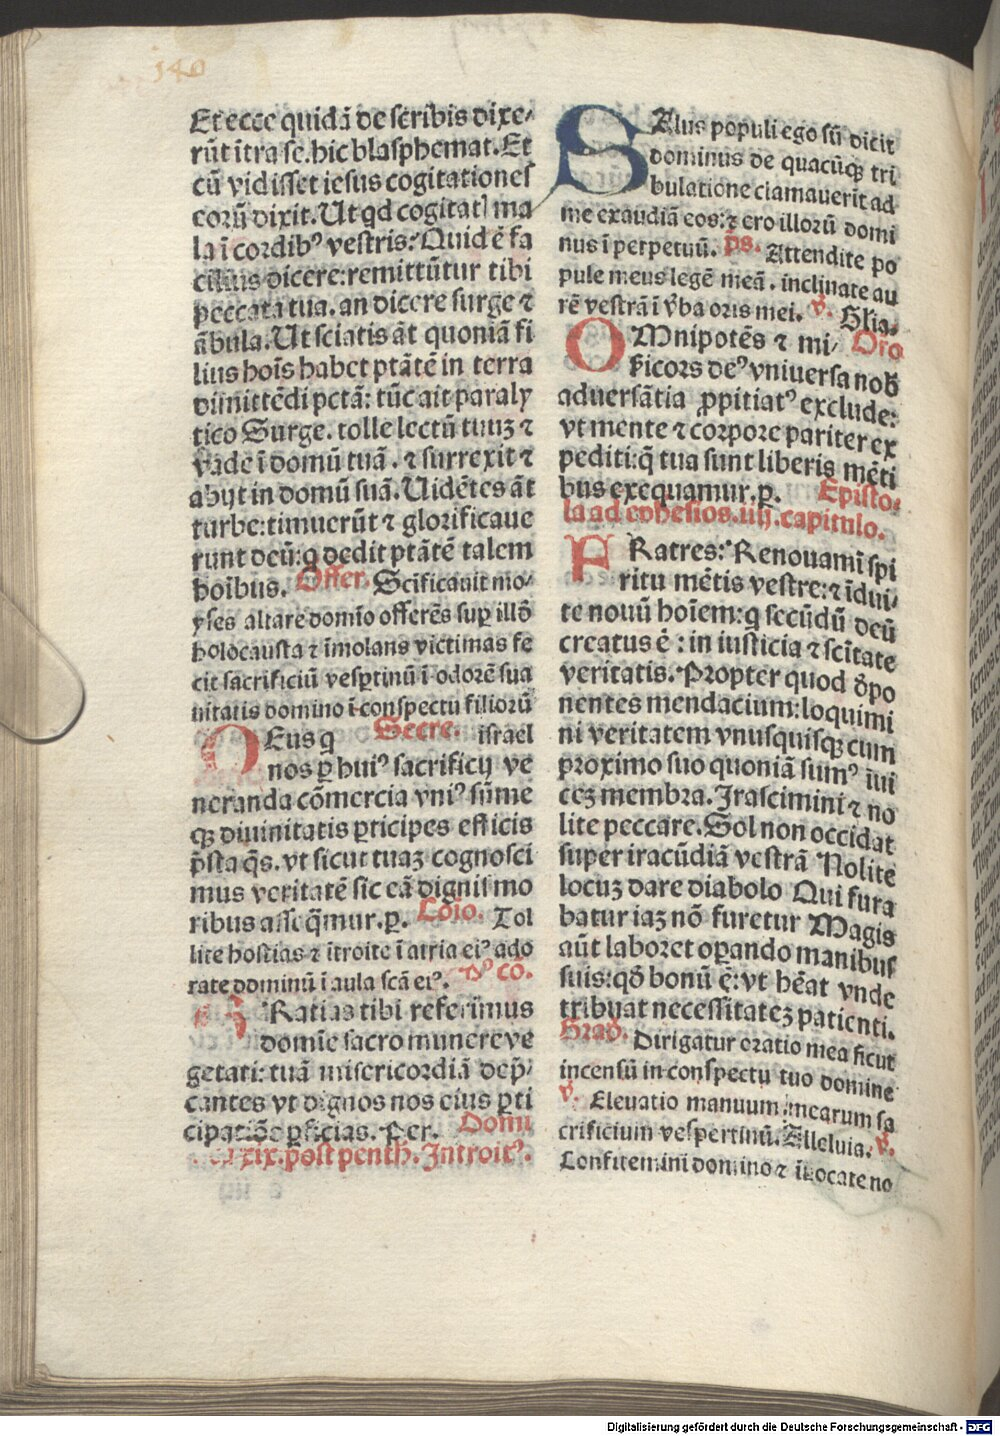 140
Et ecce quidā de scribis dixe⸗
rūt ītra se. hic blasphemat. Et
cū vidisset iesus cogitationes
eorū dixit. Ut qd cogitatꝭ ma
la ī cordibꝰ vestris: Quid ē fa
cilius dicere: remittūtur tibi
peccata tua. an dicere surge ⁊
ābula. Ut sciatis āt quoniā fi
lius hoīs habet ptātē in terra
dimittēdi pctā: tūc ait paraly
tico Surge. tolle lectū tuuꝫ ⁊
vade ī domū tuā. ⁊ surrexit ⁊
abijt in domū suā. Uidētes āt
turbe: timuerūt ⁊ glorificaue
runt deū: q dedit ptātē talem
hoībus. Offer. Scificauit mo⸗
yses altare domīo offerēs suꝑ illō
holocausta ⁊ īmolans victimas fe
cit sacrificiū vesꝑtinū ī odorē sua
uitatis domino ī conspectu filiorū
israel Secre.
DEus q
nos ꝑ huiꝰ sacrificij ve
neranda cōmercia vniꝰ sūme
qꝫ diuinitatis ꝑticipes efficis
p̄sta q̄s. vt sicut tuaꝫ cognosci
mus veritatē sic eā dignis mo
ribus asseq̄mur. ꝑ. Cōio. Tol
lite hostias ⁊ ītroite ī atria eiꝰ ado
rate dominū ī aula scā eiꝰ. Pꝰ cō.
GRatias tibi referimus
domīe sacro munere ve
getati: tuā misericordiā dep̄⸗
cantes vt dignos nos eius ꝑti
cipatiōe ꝑficias. Per. Domi
xix. post penth. Introitꝰ.
SAlus populi ego sū dicit
dominus de quacūqꝫ tri
bulatione clamauerīt ad
me exaudiā eos: ⁊ ero illorū domi
nus ī perpetuū. p̄s. Attendite po
pule meus legē meā. inclinate au
rē vestrā ī v̄ba oris mei. v̄. Glia.
OMnipotēs ⁊ mi⸗ Oro
s̄icors deꝰ vniuersa nob̄
aduersātia ꝓpitiatꝰ exclude:
vt mente ⁊ corpore pariter ex
pediti: q̄ tua sunt liberis mēti
bus exequamur. ꝑ. Episto⸗
la ad ephesios. iiij. capitulo.
FRatres: Renouamī spi
ritu mētis vestre: ⁊ īdui⸗
te nouū hoīem: q secūdū deū
creatus ē: in iusticia ⁊ scītate
veritatis. Propter quod dp̄o
nentes mendacium: loquimi
ni veritatem vnusquisqꝫ cum
proximo suo quoniā sumꝰ īui
ceꝫ membra. Irascimini ⁊ no
lite peccare. Sol non occidat
super iracūdiā vestrā Nolite
locuꝫ dare diabolo Qui fura
batur iaꝫ nō furetur Magis
aūt laboret oꝑando manibus
suis: qd̄ bonū ē: vt hēat vnde
tribuat necessitateꝫ patienti.
Grad̄. Dirigatur oratio mea sicut
incensū in conspectu tuo domine
v̄. Eleuatio manuum mearum sa
crificium vespertinū. Alleluia. v̄.
Confitemini domino ⁊ īuocate no
Digitalisierung gefördert durch die Deutsche Forschungsgemeinschaft - DFG